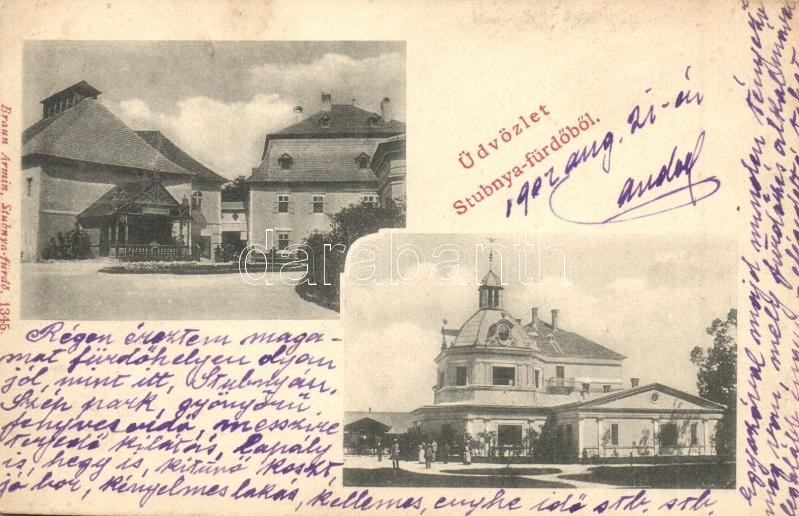 Üdvözlet
Stubnya-fürdőből.
1902 aug. 21-én
Braun Ármin, Stubnya-fürdő, 1345.
darabanth
Régen éreztem maga-
mat fürdőhelyen olyan
jól, mint itt, Stubnyán.
Szép park, gyönyörű
fenyveserdő, messzire
terjedő kilátás, lapály
is, hegy is, kitünő koszt,
jó bor, kényelmes lakás, kellemes, enyhe idő stb. stb.
majd minden
mely fürdőhely